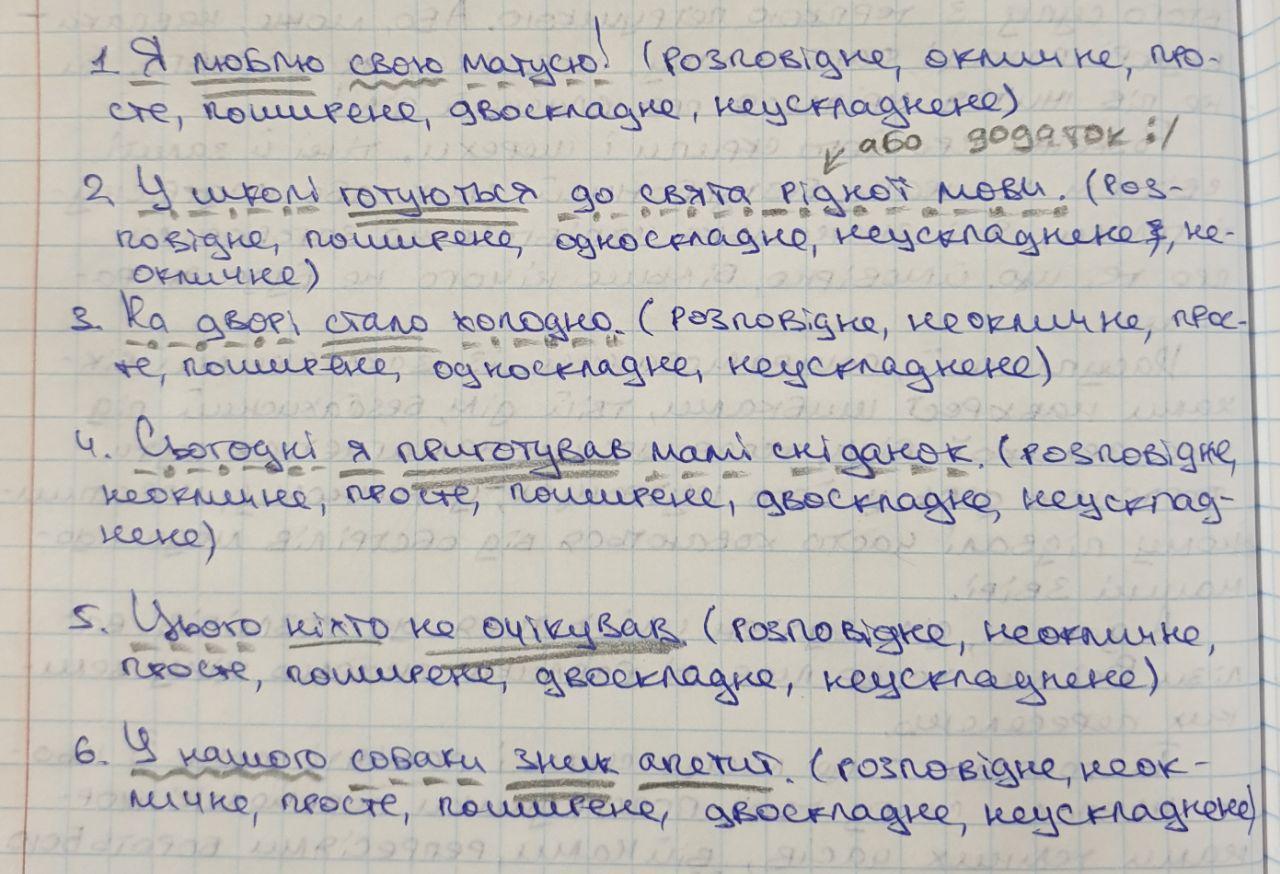 1. Я люблю свою матусю! (розповідне, окличне, про-
сте, поширене, двоскладне, неускладнене)
або додаток :/
2. У школі готуються до свята рідної мови. (роз-
повідне, поширене, односкладне, неускладнене, не-
окличне)
3. На дворі стало холодно. (розповідне, неокличне, прос-
те, поширене, односкладне, неускладнене)
4. Сьогодні я приготував мамі сніданок. (розповідне,
неокличне, просте, поширене, двоскладне, неусклад-
нене)
5. Цього ніхто не очікував. (розповідне, неокличне,
просте, поширене, двоскладне, неускладнене)
6. У нашого собаки зник апетит. (розповідне, неок-
личне, просте, поширене, двоскладне, неускладнене)